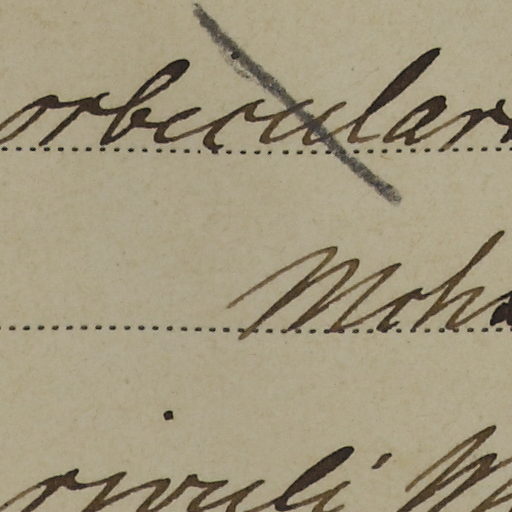 orbicular
Moh
rivuli